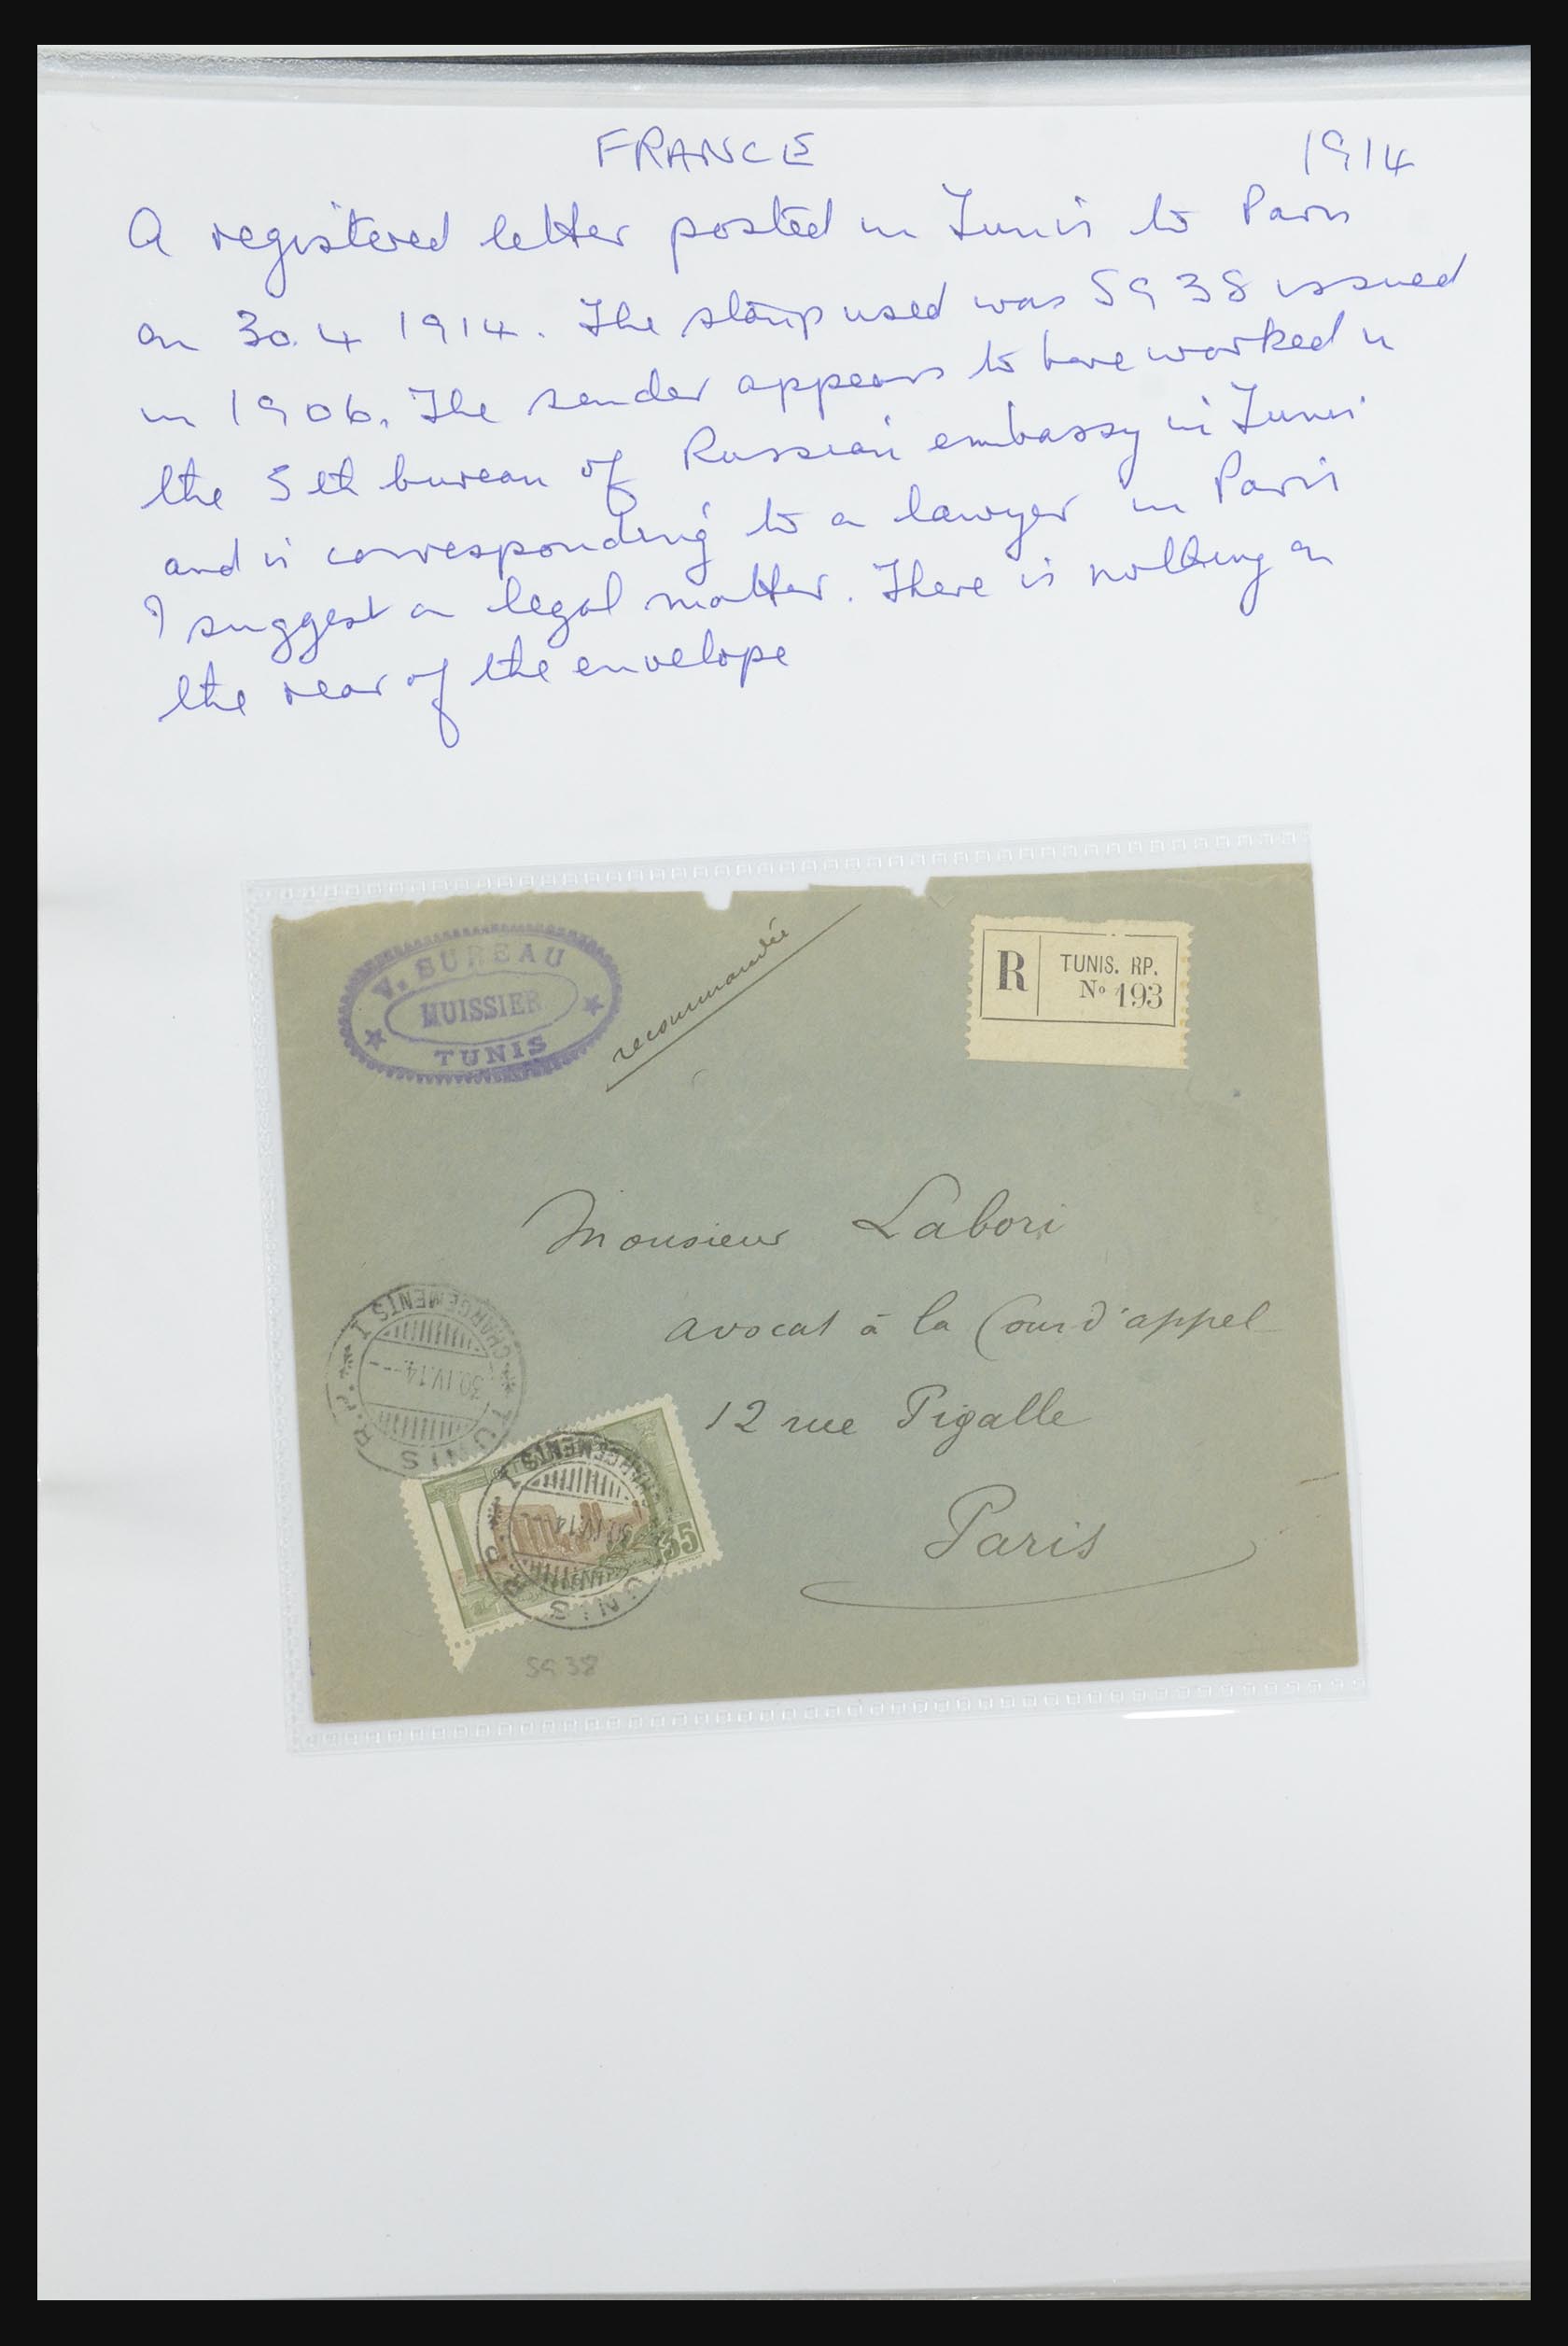 FRANCE 1914
A registered letter posted in Tunis to Paris
on 30.4 1914. The stamp used was SG 38 issued
in 1906. The sender appears to have worked in
the 5th bureau of Russian embassy in Tunis
and is corresponding to a lawyer in Paris
I suggest on legal matter. There is nothing on
the rear of the envelope
V. BUREAU
HUISSIER
TUNIS
recommandée
R TUNIS. RP.
No 193
Monsieur Labori
avocat à la Cour d'appel
12 rue Pigalle
Paris
TUNIS R.P.
CHARGEMENTS
30.IV.14
TUNIS R.P.
CHARGEMENTS
30.IV.14
35
SG 38